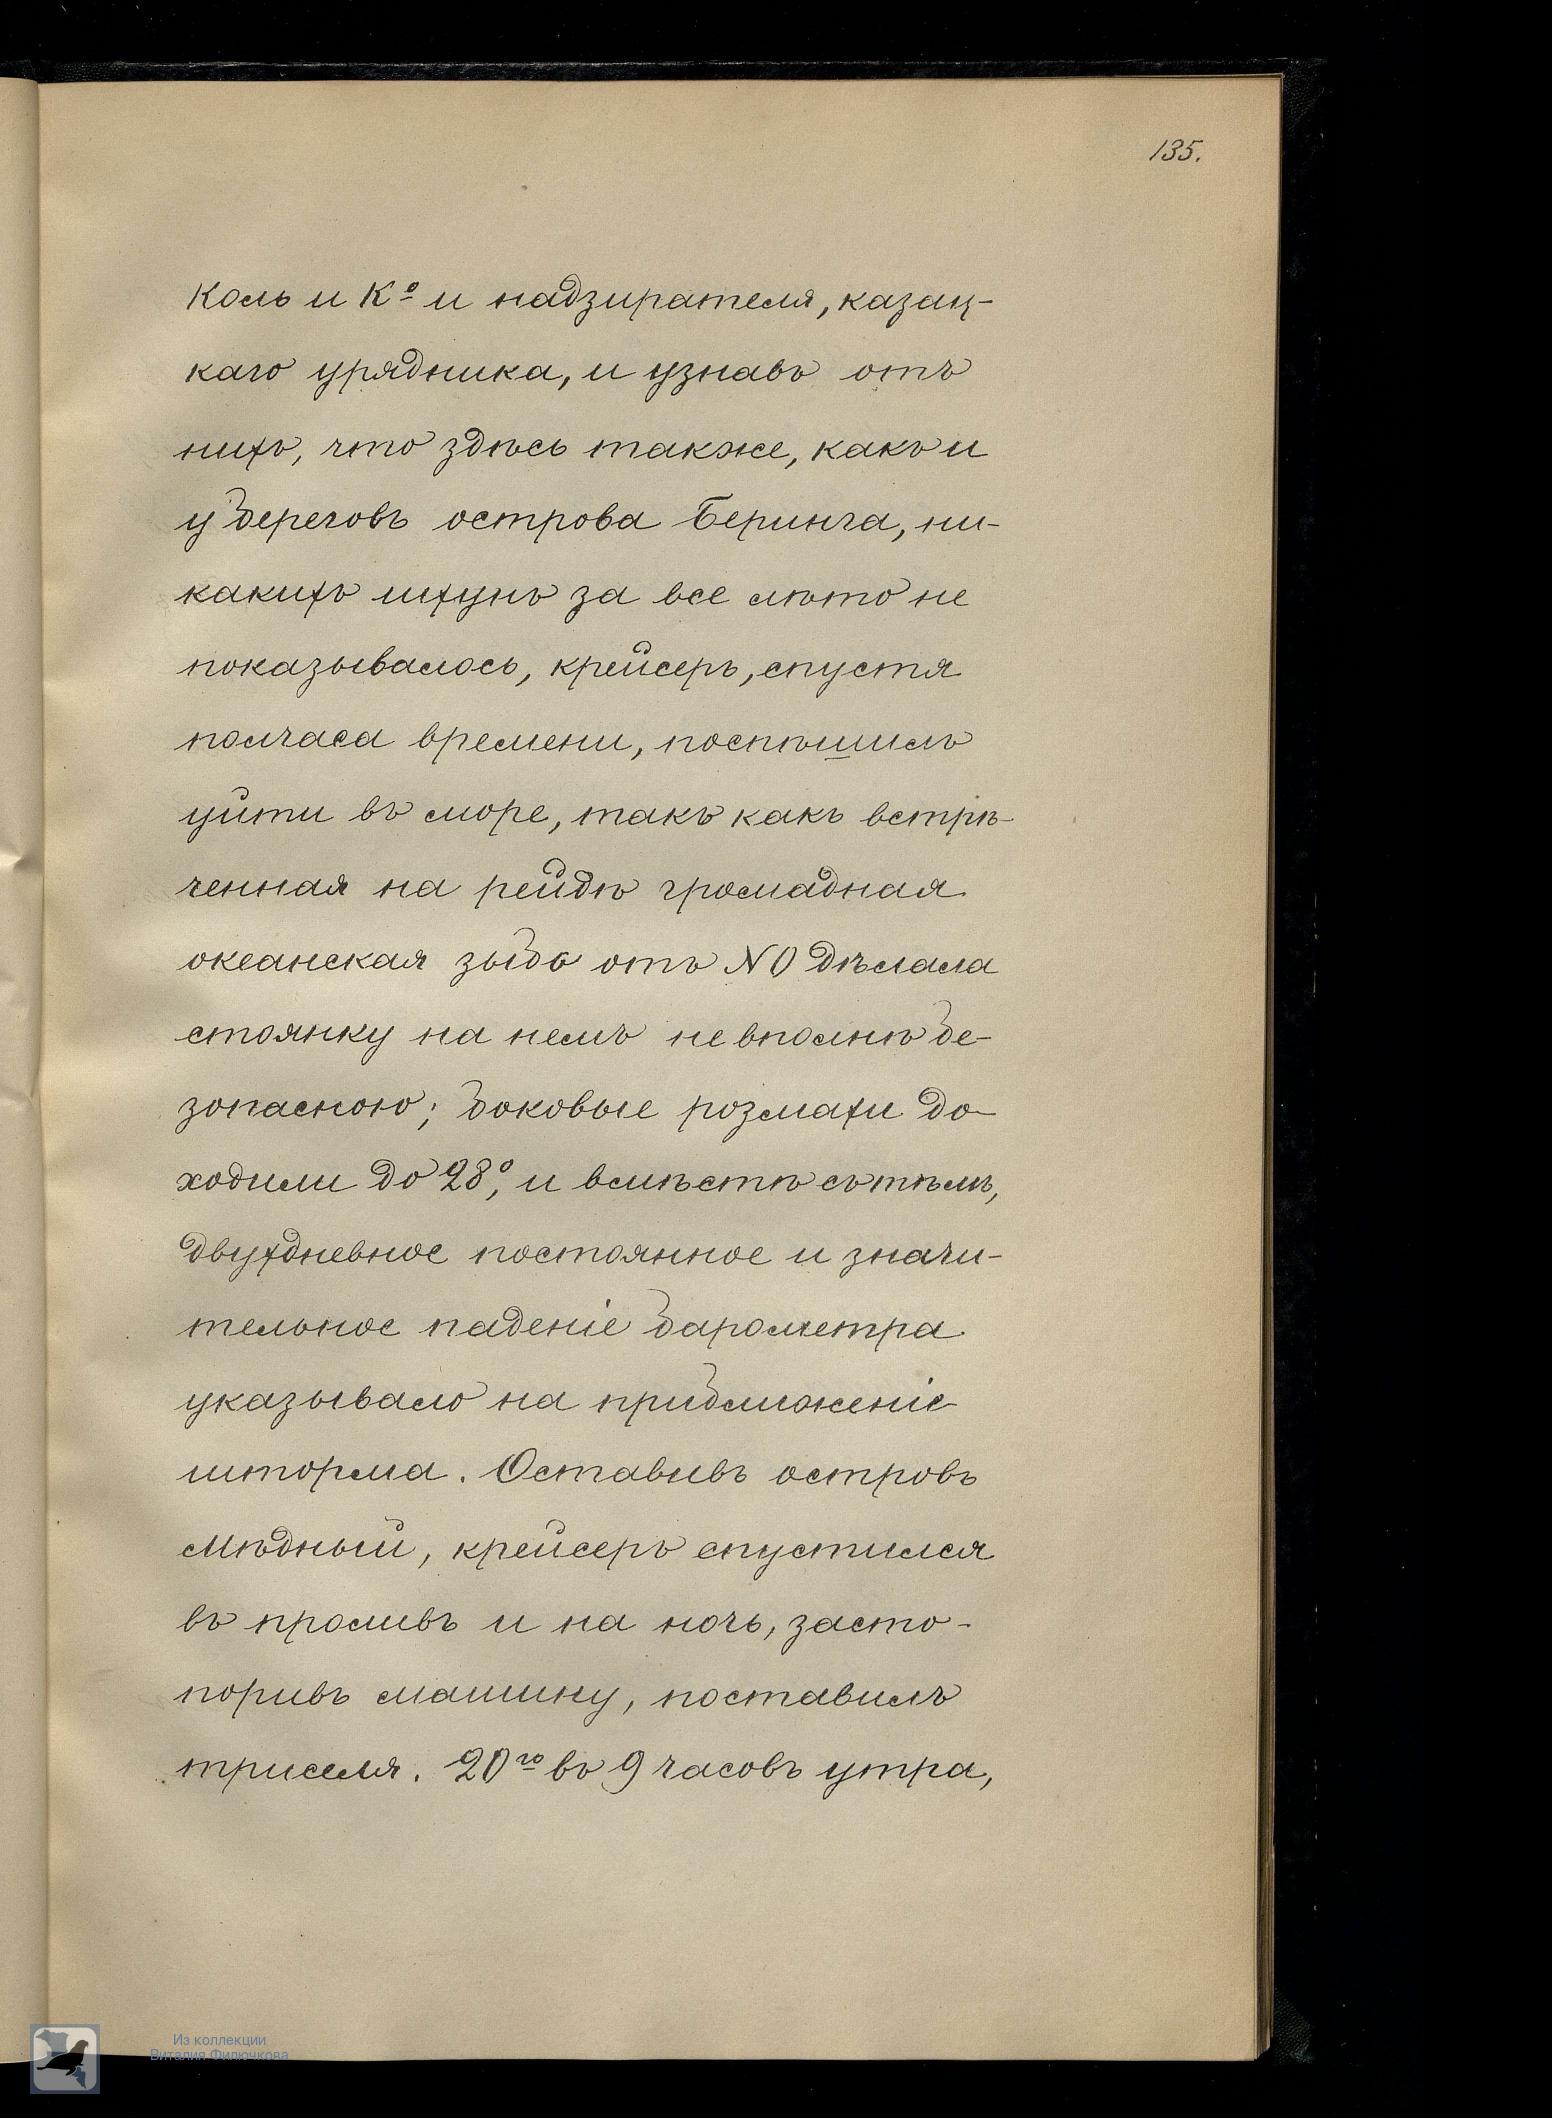 135.
Коль и Кº и надзирателя, казац-
каго урядника, и узнавъ отъ
нихъ, что здѣсь также, какъ и
у береговъ острова Беринга, ни-
какихъ шхунъ за все лѣто не
показывалось, крейсеръ, спустя
полчаса времени, поспѣшилъ
уйти въ море, такъ какъ встрѣ-
ченная на рейдѣ громадная
океанская зыбь отъ NO дѣлала
стоянку на немъ не вполнѣ бе-
зопасною; боковые розмахи до-
ходили до 28°, и вмѣстѣ съ тѣмъ,
двухдневное постоянное и значи-
тельное паденіе барометра
указывало на приближеніе
шторма. Оставивъ островъ
Мѣдный, крейсеръ спустился
въ проливъ и на ночь, засто-
поривъ машину, поставилъ
триселя. 20го въ 9 часовъ утра,
Из коллекции
Виталия Филючкова